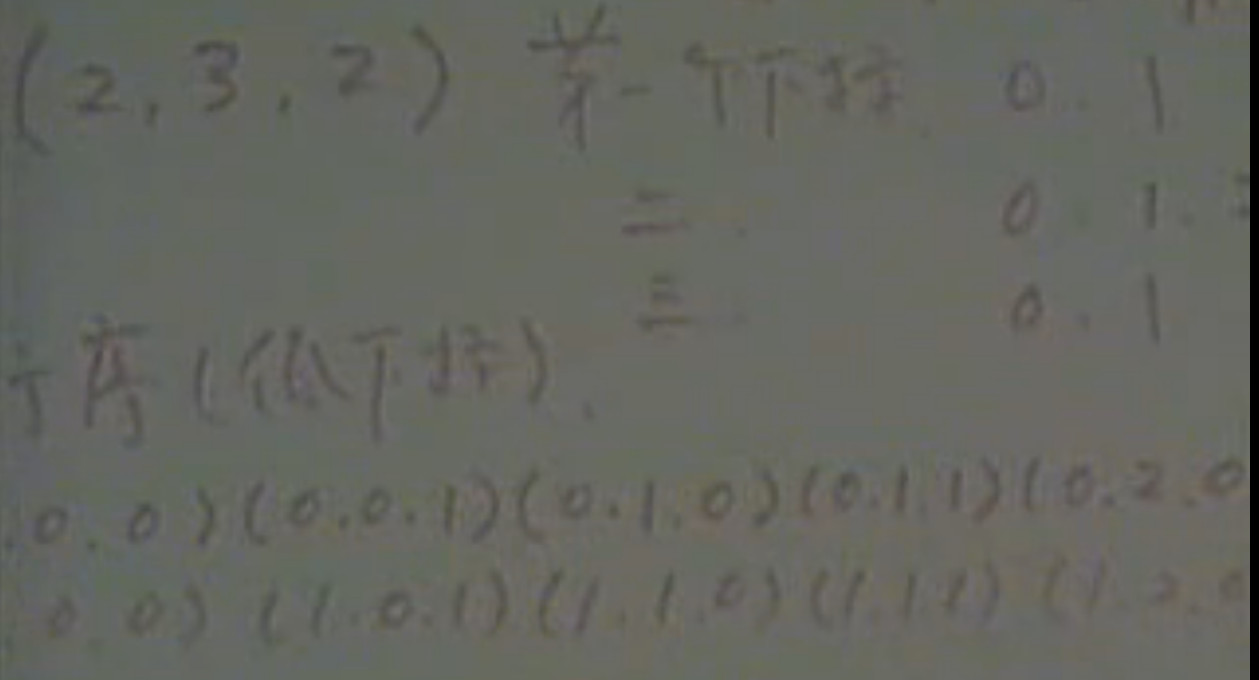 (2, 3, 2) 第一个下标 0. 1
二. 0. 1.
三. 0. 1
有 (依下标).
. 0. 0) (0. 0. 1) (0. 1. 0) (0. 1. 1) (0. 2. 0
. 0. 0) (1. 0. 1) (1. 1. 0) (1. 1. 1) (1. 2. 0